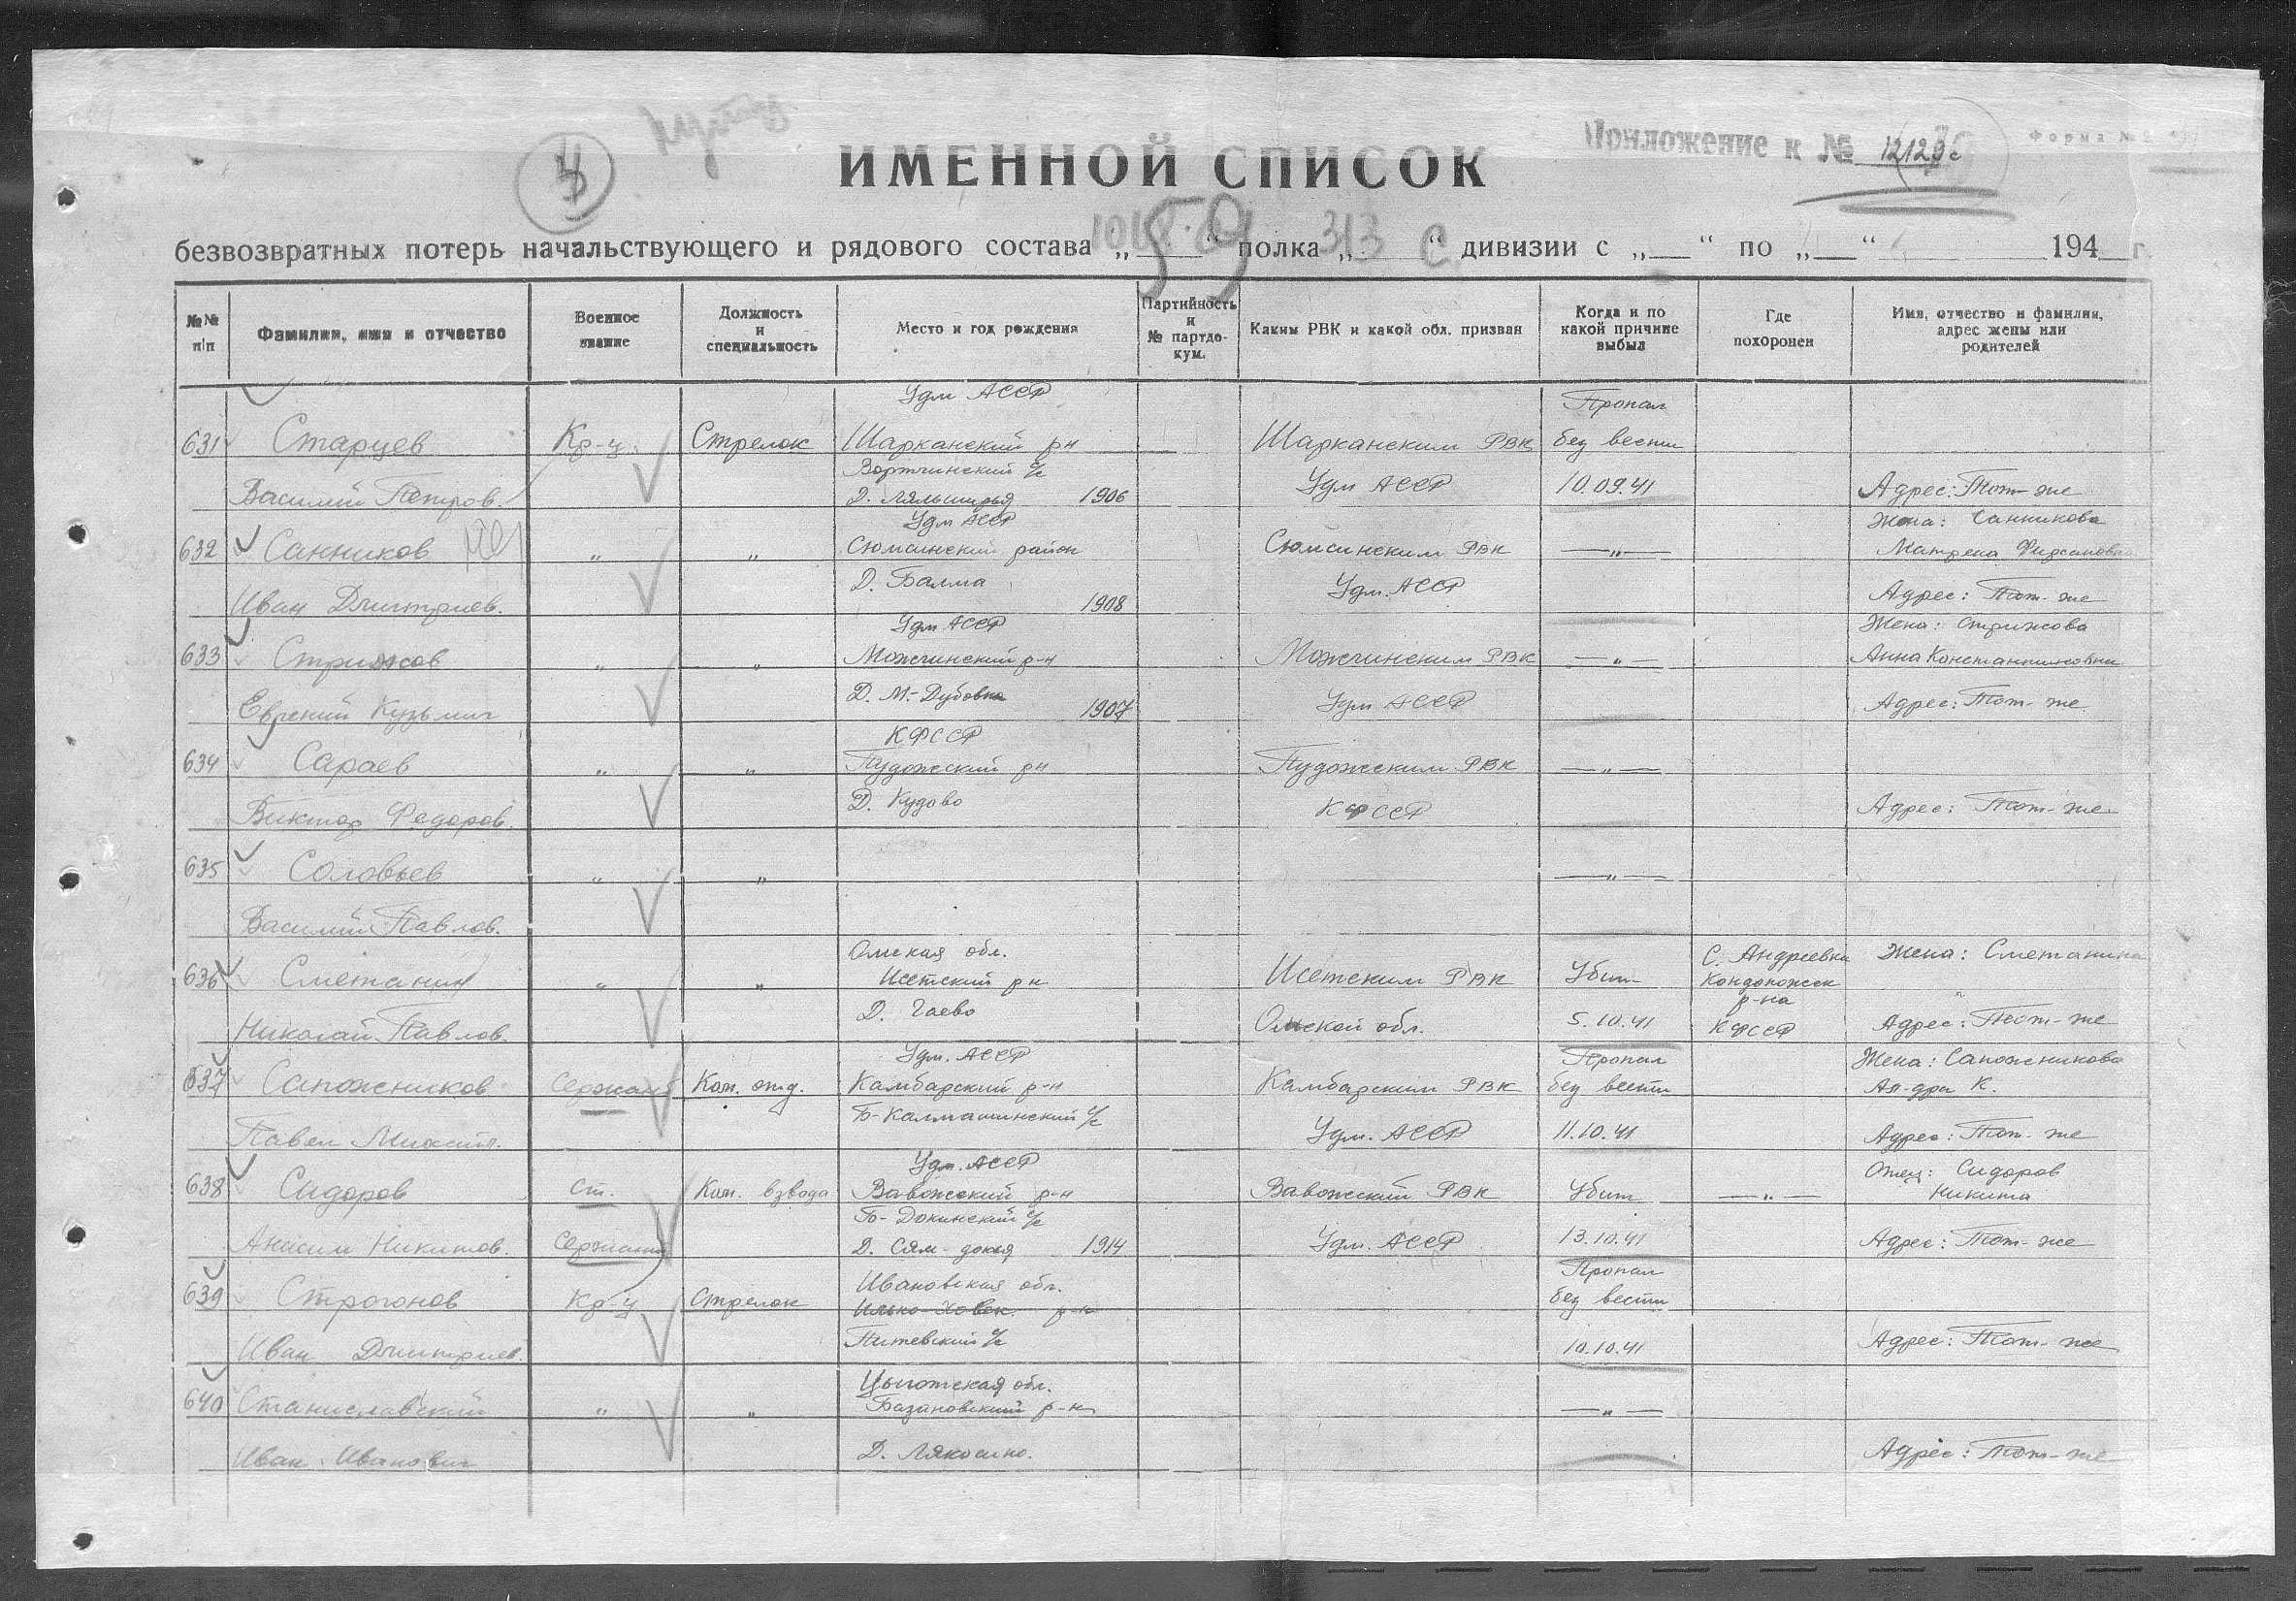 Приложение к № 12129с
Форма №
ИМЕННОЙ СПИСОК
безвозвратных потерь начальствующего и рядового состава „ “ полка „313 с“ дивизии с „ “ по „ “ 194 г.
№№ п/п
Фамилия, имя и отчество
Военное звание
Должность и специальность
Место и год рождения
Партийность и № партдокум.
Каким РВК и какой обл. призван
Когда и по какой причине выбыл
Где похоронен
Имя, отчество и фамилия, адрес жены или родителей
Удм АССР Пропал
631 Старцев Кр-ц. Стрелок Шарканский рн Шарканским РВК без вести
Вортчинский с/с
Василий Петров. 1906 Удм АССР 10.09.41 Адрес: Тот-же
Удм АССР Жена: Санникова
632 Санников „ „ Сюмсинский район Сюмсинским РВК —„— Матрена Фирсановна
Иван Дмитриев. Д. Балма 1908 Удм. АССР Адрес: Тот-же
Удм АССР Жена: Стрижова
633 Стрижов „ „ Можгинский р-н Можгинским РВК —„— Анна Константиновна
Евгений Кузьмич Д. М.-Дубовка 1907 Удм АССР Адрес: Тот-же.
КФССР
634 Сараев „ „ Пудожский рн Пудожским РВК —„—
Виктор Федоров. Д. Кудово КФССР Адрес: Тот-же
635 Соловьев „ „ —„—
Василий Павлов.
Омская обл. С. Андреевка Жена: Сметанина
636 Сметанин „ „ Исетский рн Исетским РВК Убит Кондопожск р-на
Николай Павлов. Д. Гаево Омской обл. 5.10.41 КФССР Адрес: Тот-же
Удм. АССР Пропал Жена: Сапожникова
637 Сапожников Сержант Ком. отд. Камбарский р-н Камбарским РВК без вести Ал-дра К.
Б-Калмашинский с/с
Павел Михайл. Удм. АССР 11.10.41 Адрес: Тот-же
Удм. АССР Отец: Сидоров
638 Сидоров Ст. Ком. взвода Вавожский р-н Вавожский РВК Убит —„— Никита
Б-Докинский с/с
Анисим Никитов. Сержант Д. Сям-докья 1914 Удм. АССР 13.10.41 Адрес: Тот-же
Ивановская обл. Пропал
639 Строгонов Кр-ц Стрелок р-н без вести
Иван Дмитриев. 10.10.41 Адрес: Тот-же
640 Станиславский „ „ Базановский р-н —„—
Иван Иванович Адрес: Тот-же